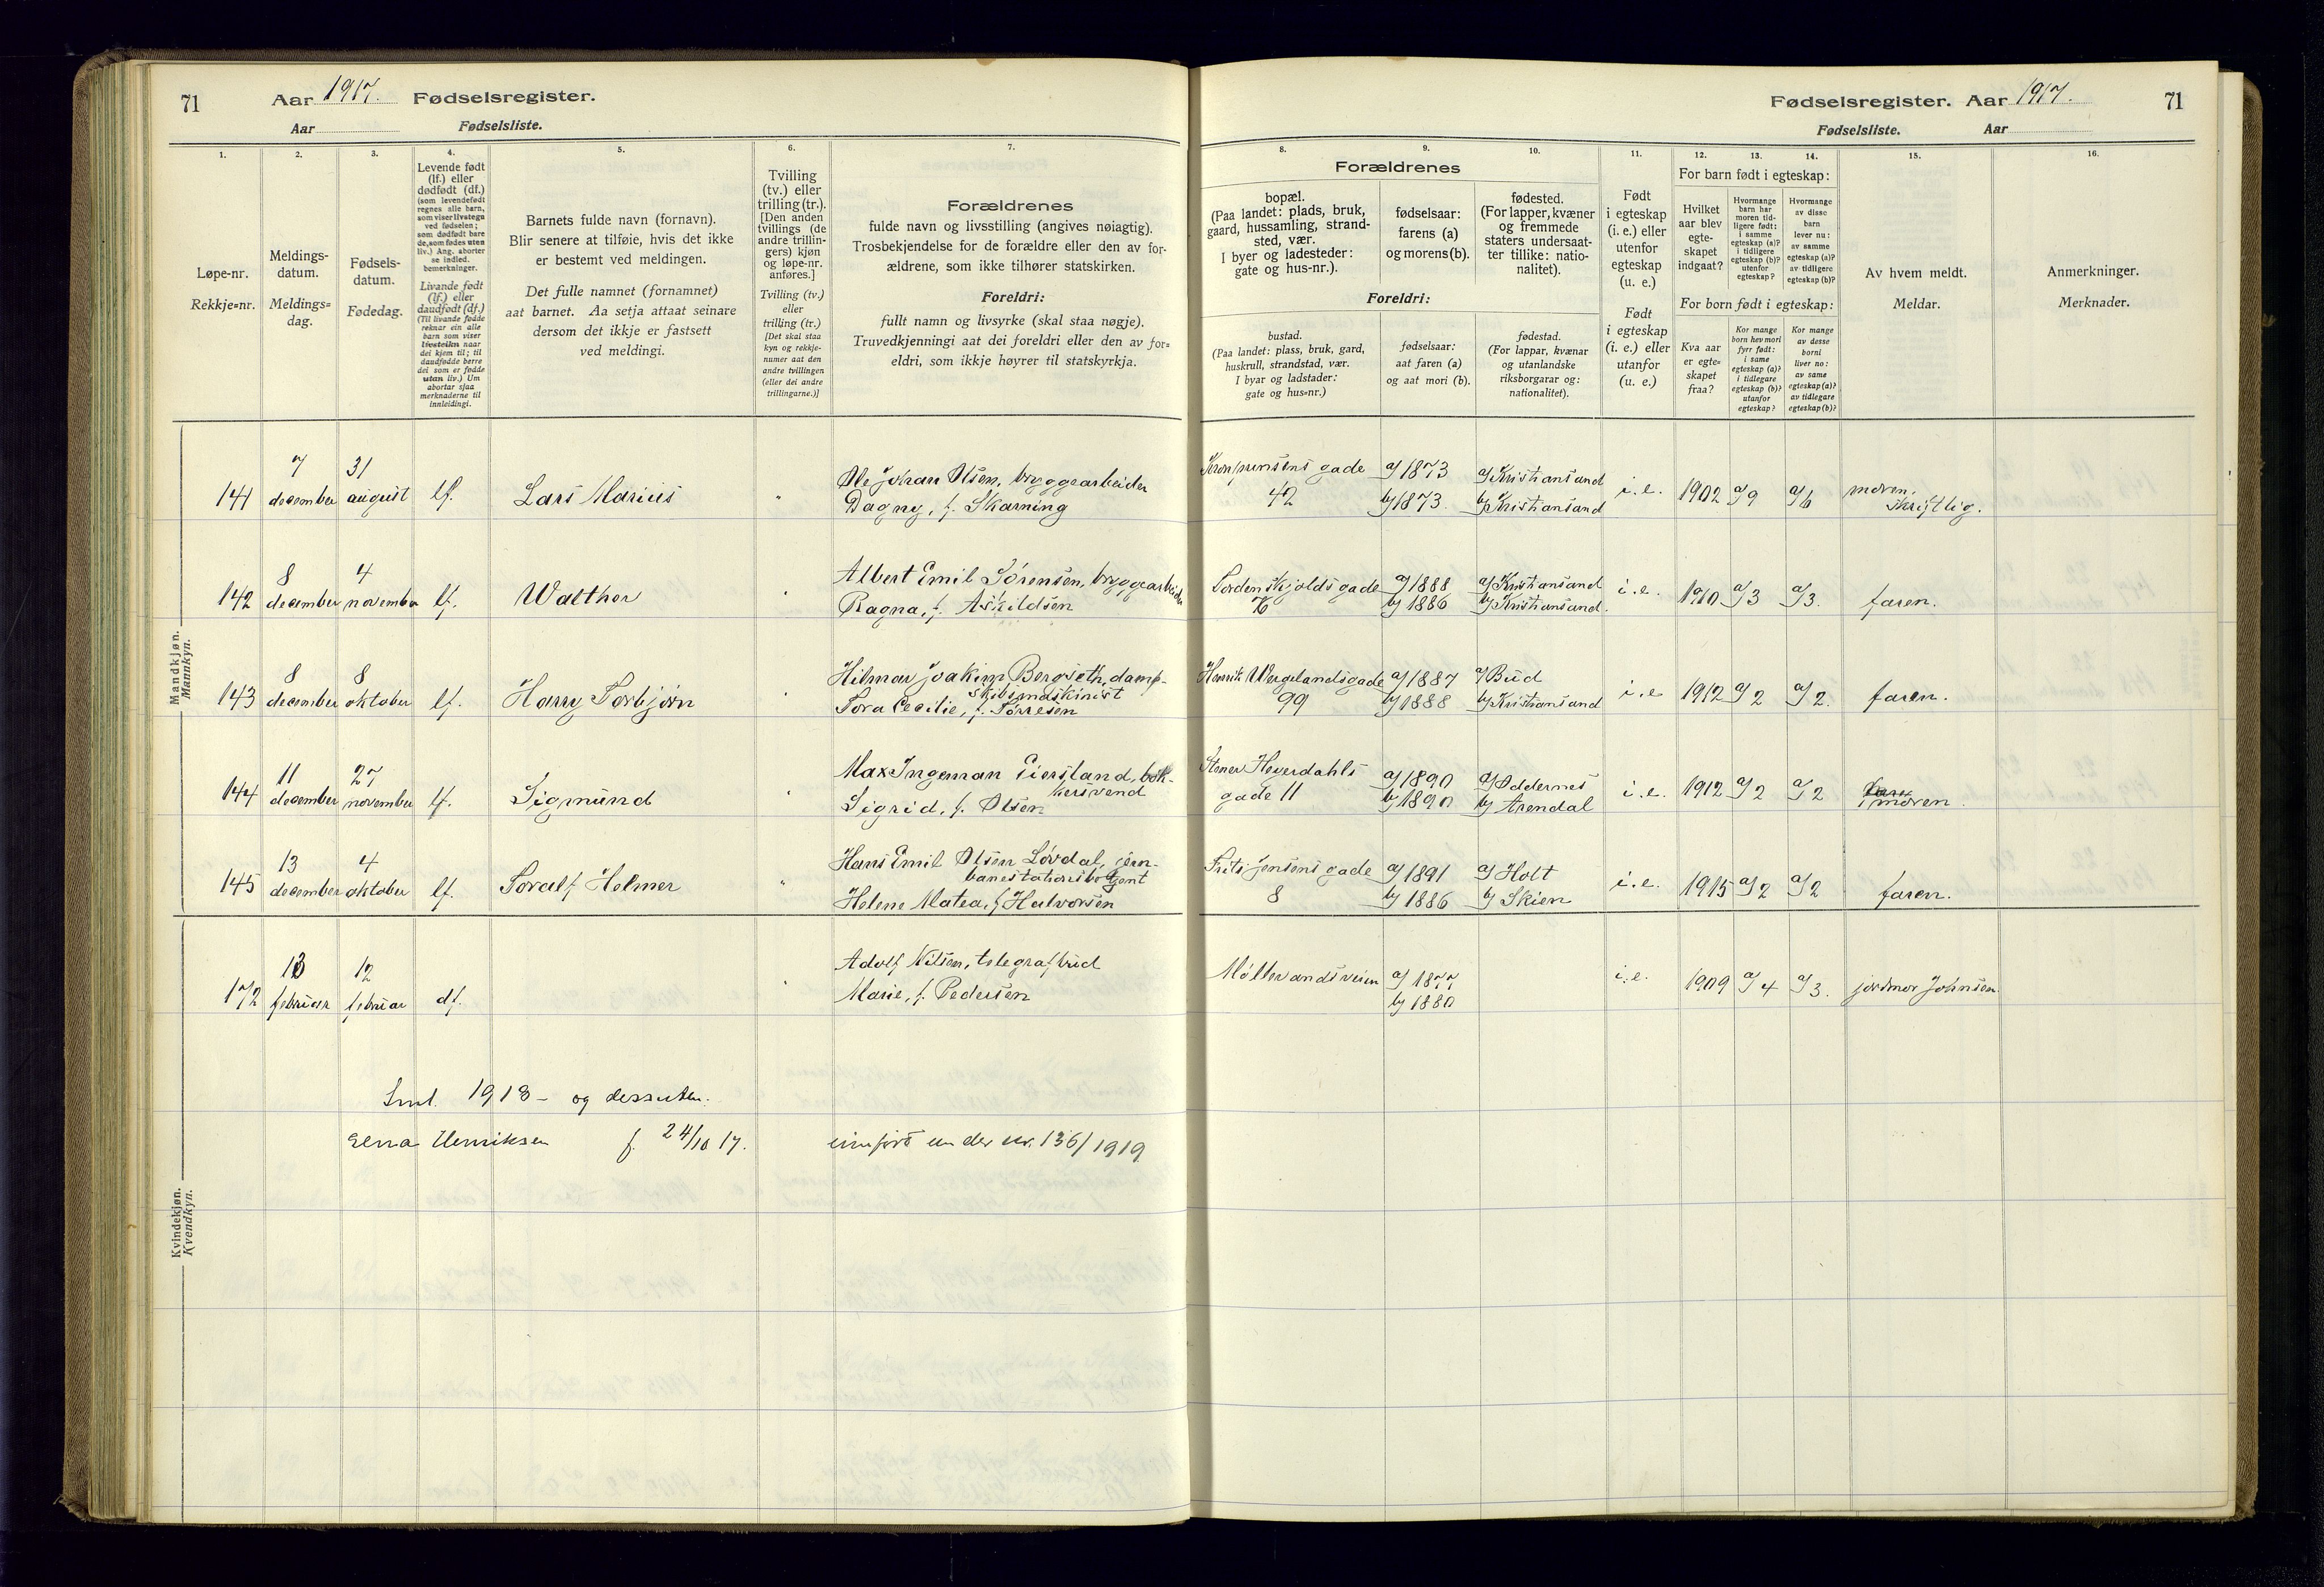 71
Aar 1917. Fødselsregister.
Aar Fødselsliste.
Fødselsregister. Aar 1917.
71
Fødselsliste. Aar
1.
2.
3.
4.
5.
6.
7.
8.
9.
10.
11.
12.
13.
14.
15.
16.
Løpe-nr.
Rekkje=nr.
Meldings-
datum.
Meldings=
dag.
Fødsels-
datum.
Fødedag.
Levende født
(lf.) eller
dødfødt (df.)
(som levendefødt
regnes alle barn,
som viser livstegn
ved fødselen;
som dødfødt bare
de, som fødes uten
liv.) Ang. aborter
se indled.
bemerkninger.
Livande født
(lf.) eller
daudfødt (df.)
(Til livande fødde
reknar ein alle
barn som viser
livsteikn naar
dei kjem til; til
daudfødde berre
dei som er fødde
utan liv.) Um
abortar sjaa
merknaderne til
innleidingi.
Barnets fulde navn (fornavn).
Blir senere at tilføie, hvis det ikke
er bestemt ved meldingen.
Det fulle namnet (fornamnet)
aat barnet. Aa setja attaat seinare
dersom det ikkje er fastsett
ved meldingi.
Tvilling
(tv.) eller
trilling (tr.).
[Den anden
tvillings (de
andre trillin-
gers) kjøn
og løpe-nr.
anføres.]
Tvilling (tv.)
eller
trilling (tr.)
[Det skal staa
kyn og rekkje-
numer aat den
andre tvillingen
(eller dei andre
trillingarne.)]
Forældrenes
fulde navn og livsstilling (angives nøiagtig).
Trosbekjendelse for de forældre eller den av for-
ældrene, som ikke tilhører statskirken.
Foreldri:
fullt namn og livsyrke (skal staa nøgje).
Truvedkjenningi aat dei foreldri eller den av for=
eldri, som ikkje høyrer til statskyrkja.
Forældrenes
bopæl.
(Paa landet: plads, bruk,
gaard, hussamling, strand-
sted, vær.
I byer og ladesteder:
gate og hus-nr.).
fødselsaar:
farens (a)
og morens (b).
fødested.
(For lapper, kvæner
og fremmede
staters undersaat-
ter tillike: natio-
nalitet).
Foreldri:
bustad.
(Paa landet: plass, bruk, gard,
huskrull, strandstad, vær.
I byar og ladstader:
gate og hus=nr.)
fødselsaar:
aat faren (a)
og aat mori (b).
fødestad.
(For lappar, kvænar
og utanlandske
riksborgarar og:
nationalitet).
Født
i egteskap
(i. e.) eller
utenfor
egteskap
(u. e.)
Født
i egteskap
(i. e.) eller
utanfor
egteskap
(u. e.)
For barn født i egteskap:
Hvilket
aar blev
egte-
skapet
indgaat?
Hvormange
barn har
moren tid-
ligere født:
i samme
egteskap (a)?
i tidligere
egteskap (b)?
utenfor
egteskap?
Hvormange
av disse
barn
lever nu:
av samme
egteskap (a)?
av tidligere
egteskap (b)?
For born født i egteskap:
Kva aar
er egte=
skapet
fraa?
Kor mange
born hev mori
fyrr født:
i same
egteskap (a)?
i tidlegare
egteskap (b)?
utanfor
egteskap?
Kor mange
av desse
borni
liver no:
av same
egteskap (a)?
av tidlegare
egteskap (b)?
Av hvem meldt.
Meldar.
Anmerkninger.
Merknader.
Mandkjøn.
Mannkyn.
141 7 december 31 august lf. Lars Marius " Ole Johan Olsen, bryggearbeider
Dagny, f. Skarning
Kronprinsens gade 42 a) 1873 b) 1873. a) Kristiansand b) Kristiansand i. e. 1902 a) 9 a) 6 moren, skriftlig.
142 8 december 4 november lf. Walther " Albert Emil Sørensen, bryggearbeider
Ragna, f. Askildsen
Tordenskjolds gade a) 1888 b) 1886 a) Kristiansand b) Kristiansand. i. e. 1910 a) 3 a) 3. faren.
143 8 december 8 oktober lf. Harry Torbjørn " Hilmar Joakim Bergseth, damp-
skibsmaskinist
Tora Cecilie, f. Tørresen
Henrik Wergelandsgade 99 a) 1887 b) 1888 a) Bud b) Kristiansand i. e 1912 a) 2 a) 2. faren.
144 11 december 27 november lf. Sigmund " Max Ingeman Eiersland, bøk-
kersvend
Sigrid, f. Olsen
Stener Heyerdahls gade 11 a) 1890 b) 1890 a) Oddernes b) Arendal i. e. 1912 a) 2 a) 2 moren.
145 13 december 4 oktober lf. Toralf Helmer " Hans Emil Olsen Løvdal, jern-
banestationsbetjent
Helene Matea, f. Halvorsen
Frits Jensens gade 8 a) 1891 b) 1886 a) Holt b) Skien i. e. 1915 a) 2 a) 2 faren.
Kvindekjøn.
Kvendkyn.
172 13 februar 12 februar df. " Adolf Nilsen, telegrafbud
Marie, f. Pedersen
Møllevandsveien a) 1877 b) 1880 i. e. 1909 a) 4 a) 3. jordmor Johnsen.
Sml. 1918 - og dessuten.
Erna Henriksen f. 24/10 17. innført under nr. 136/1919.